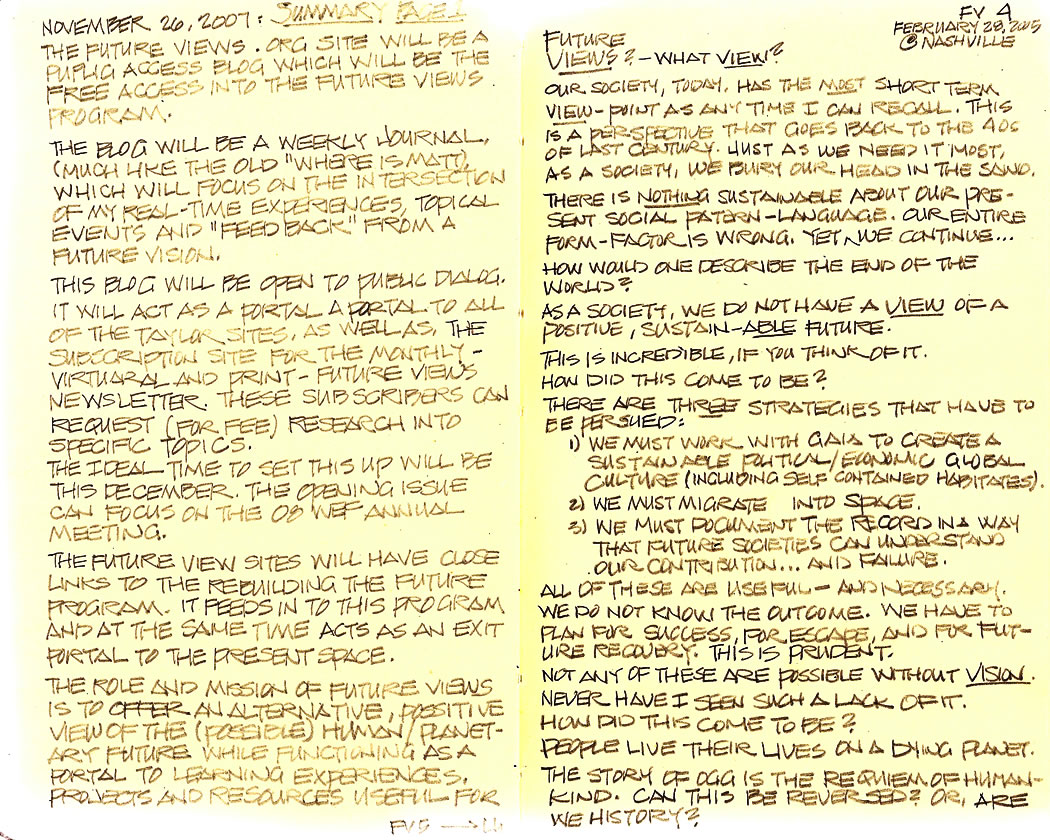 NOVEMBER 26, 2007: SUMMARY PAGE 1
THE FUTURE VIEWS . ORG SITE WILL BE A
PUPLIC ACCESS BLOG WHICH WILL BE THE
FREE ACCESS INTO THE FUTURE VIEWS
PROGRAM.
THE BLOG WILL BE A WEEKLY JOURNAL,
(MUCH LIKE THE OLD "WHERE IS MATT),
WHICH WILL FOCUS ON THE INTERSECTION
OF MY REAL-TIME EXPERIENCES, TOPICAL
EVENTS AND "FEED BACK" FROM A
FUTURE VISION.
THIS BLOG WILL BE OPEN TO PUBLIC DIALOG.
IT WILL ACT AS A PORTAL A PORTAL TO ALL
OF THE TAYLOR SITES, AS WELL AS, THE
SUBSCRIPTION SITE FOR THE MONTHLY -
VIRTUARAL AND PRINT - FUTURE VIEWS
NEWSLETTER. THESE SUBSCRIBERS CAN
REQUEST (FOR FEE) RESEARCH INTO
SPECIFIC TOPICS.
THE IDEAL TIME TO SET THIS UP WILL BE
THIS DECEMBER. THE OPENING ISSUE
CAN FOCUS ON THE 08 WEF ANNUAL
MEETING.
THE FUTURE VIEW SITES WILL HAVE CLOSE
LINKS TO THE REBUILDING THE FUTURE
PROGRAM. IT FEEDS IN TO THIS PROGRAM
AND AT THE SAME TIME ACTS AS AN EXIT
PORTAL TO THE PRESENT SPACE.
THE ROLE AND MISSION OF FUTURE VIEWS
IS TO OFFER AN ALTERNATIVE, POSSITIVE
VIEW OF THE (POSSIBLE) HUMAN/PLANET-
ARY FUTURE WHILE FUNCTIONING AS A
PORTAL TO LEARNING EXPERIENCES,
PROJECTS AND RESOURCES USEFUL FOR
FV 5
FV 4
FEBRUARY 28, 2005
@ NASHVILLE
FUTURE
VIEWS? - WHAT VIEW?
OUR SOCIETY, TODAY, HAS THE MOST SHORT TERM
VIEW-POINT AS ANY TIME I CAN RECALL. THIS
IS A PERSPECTIVE THAT GOES BACK TO THE 40S
OF LAST CENTURY. JUST AS WE NEED IT MOST,
AS A SOCIETY, WE BURY OUR HEAD IN THE SAND.
THERE IS NOTHING SUSTAINABLE ABOUT OUR PRE-
SENT SOCIAL PATERN-LANGUAGE. OUR ENTIRE
FORM-FACTOR IS WRONG. YET, WE CONTINUE...
HOW WOULD ONE DESCRIBE THE END OF THE
WORLD?
AS A SOCIETY, WE DO NOT HAVE A VIEW OF A
POSITIVE, SUSTAIN-ABLE FUTURE.
THIS IS INCREDIBLE, IF YOU THINK OF IT.
HOW DID THIS COME TO BE?
THERE ARE THREE STRATEGIES THAT HAVE TO
BE PERSUED:
1) WE MUST WORK WITH GAIA TO CREATE A
SUSTAINABLE POLITICAL/ECONOMIC GLOBAL
CULTURE (INCLUDING SELF CONTAINED HABITATES).
2) WE MUST MIGRATE INTO SPACE.
3) WE MUST DOCUMENT THE RECORD IN A WAY
THAT FUTURE SOCIETIES CAN UNDERSTAND
OUR CONTRIBUTION... AND FAILURE.
ALL OF THESE ARE USEFUL - AND NECESSARY.
WE DO NOT KNOW THE OUTCOME. WE HAVE TO
PLAN FOR SUCCESS, FOR ESCAPE, AND FOR FUT-
URE RECOVERY. THIS IS PRUDENT.
NOT ANY OF THESE ARE POSSIBLE WITHOUT VISION.
NEVER HAVE I SEEN SUCH A LACK OF IT.
HOW DID THIS COME TO BE?
PEOPLE LIVE THEIR LIVES ON A DYING PLANET.
THE STORY OF OGG IS THE REQUIEM OF HUMAN-
KIND. CAN THIS BE REVERSED? OR, ARE
WE HISTORY?